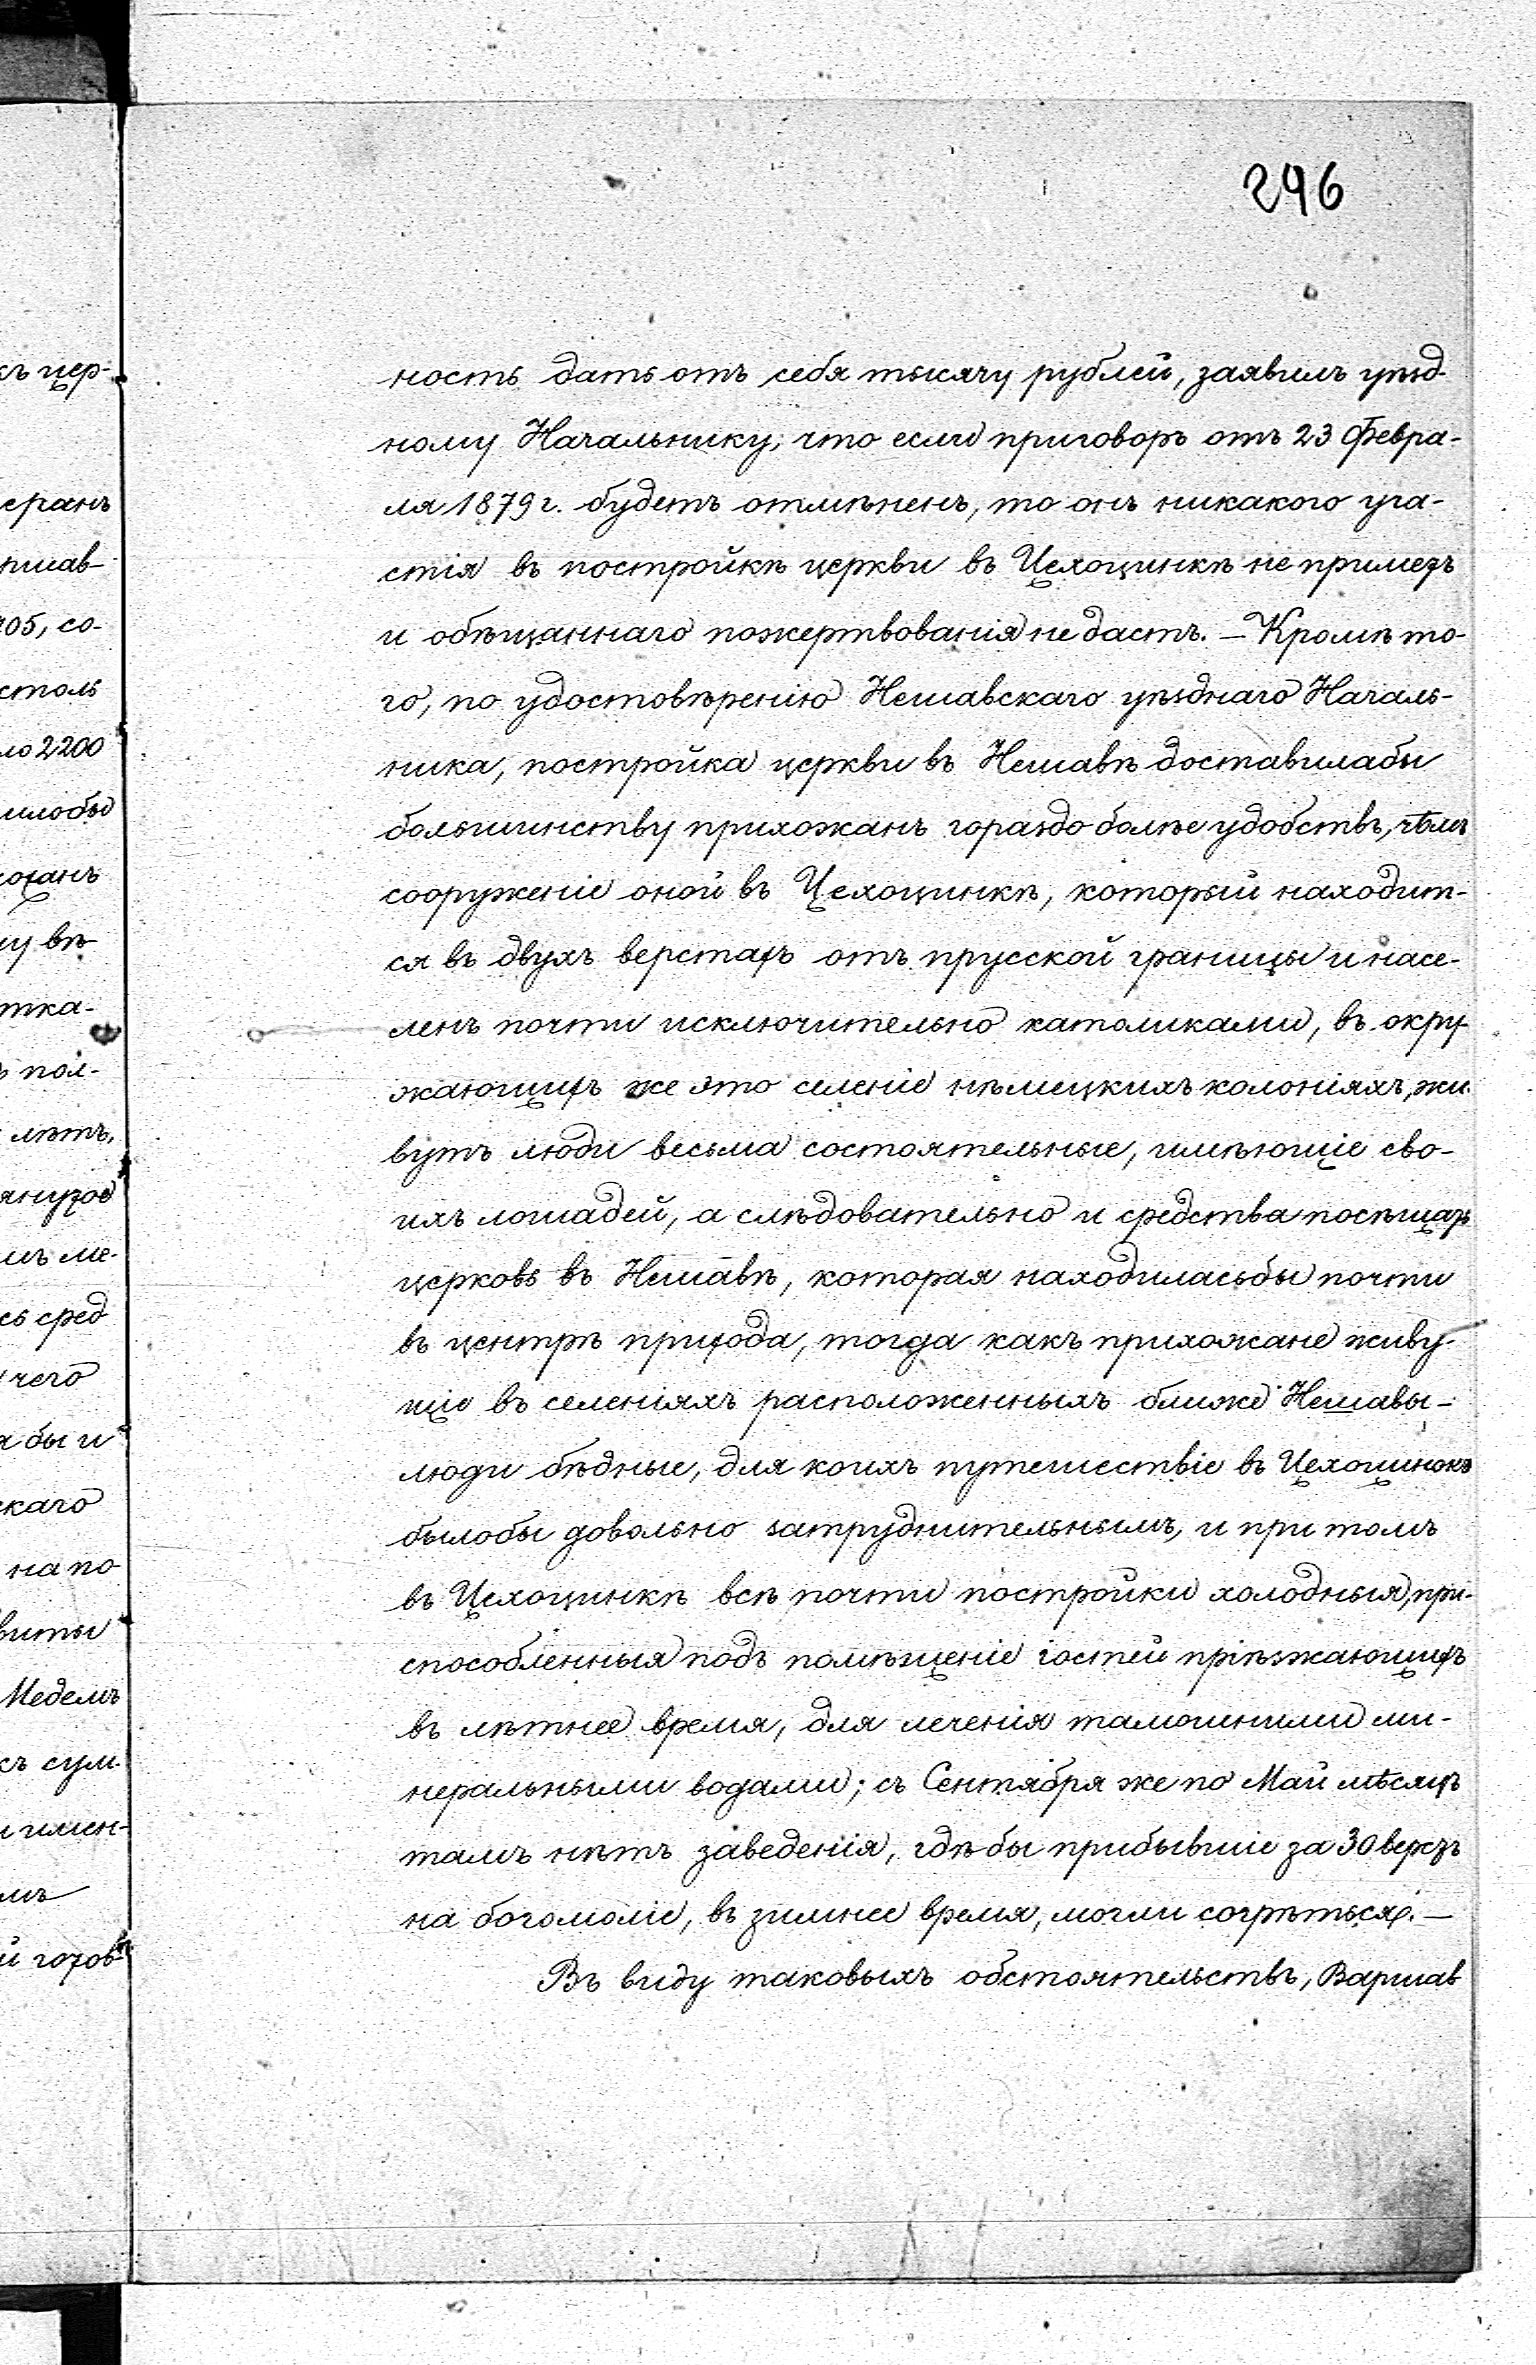 296
ность дать отъ себя тысячу рублей, заявилъ уѣзд-
ному Начальнику, что если приговоръ отъ 23 Февра-
ля 1879 г. будетъ отмѣненъ, то онъ никакого уча-
стія въ постройкѣ церкви въ Цехоцинкѣ не приметъ
и обѣщаннаго пожертвованія не дастъ. — Кромѣ то-
го, по удостовѣренію Нешавскаго уѣзднаго Началь-
ника, постройка церкви въ Нешавѣ доставилабы
большинству прихожанъ гораздо болѣе удобствъ, чѣмъ
сооруженіе оной въ Цехоцинкѣ, который находит-
ся въ двухъ верстахъ отъ прусской границы и насе-
ленъ почти исключительно католиками, въ окру-
жающихъ же это селеніе нѣмецкихъ колоніяхъ, жи-
вутъ люди весьма состоятельные, имѣющіе сво-
ихъ лошадей, а слѣдовательно и средства посѣщать
церковь въ Нешавѣ, которая находиласьбы почти
въ центрѣ прихода, тогда какъ прихожане живу-
щіе въ селеніяхъ расположенныхъ ближе Нешавы —
люди бѣдные, для коихъ путешествіе въ Цехоцинокъ
былобы довольно затруднительнымъ, и при томъ
въ Цехоцинкѣ всѣ почти постройки холодныя, при-
способленныя подъ помѣщеніе гостей пріѣзжающихъ
въ лѣтнее время, для леченія тамошними ми-
неральными водами; съ Сентября же по Май мѣсяцъ
тамъ нѣтъ заведенія, гдѣ бы прибывшіе за 30 верстъ
на богомоліе, въ зимнее время, могли согрѣться. —
Въ виду таковыхъ обстоятельствъ, Варшав